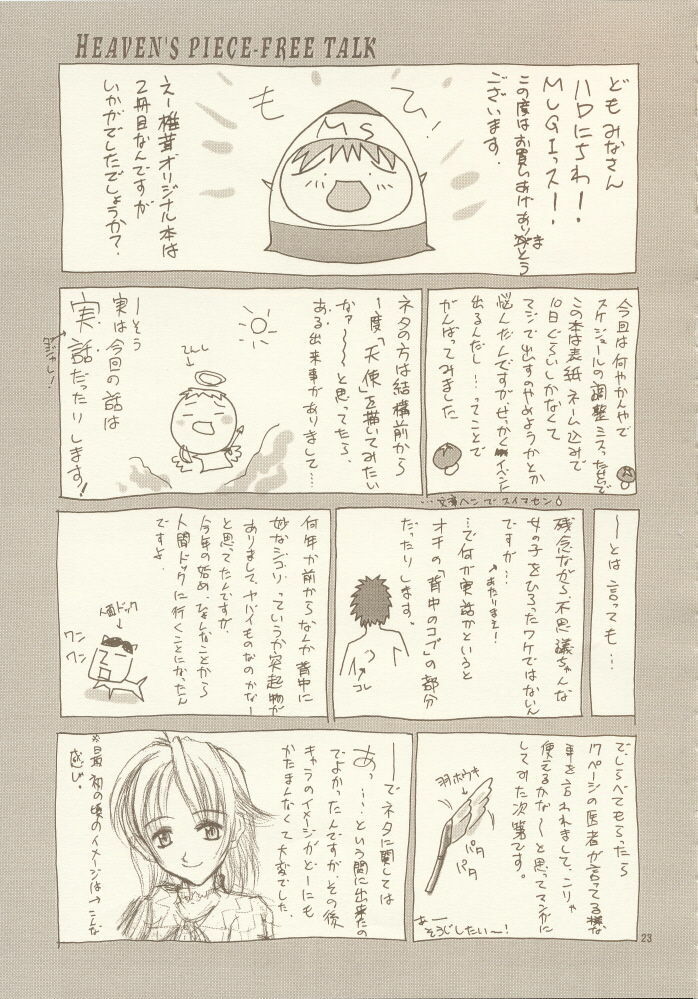 HEAVEN'S PIECE-FREE TALK
どもみなさん
ハロにちわ!
MUGIっス!
この度はお買いあげありがとう
ま
ございます。
ひ!
も
MS
えー椎茸オリジナル本は
2冊目なんですが
いかがでしたでしょうか?
今回は何やかんやで
スケジュールの調整ミスったせいで
この本は表紙、ネーム込みで
10日ぐらいしかなくて
マジで出すのやめようかとか
悩んだんですが、せっかくイベント
出るんだし…ってことで
がんばってみました
ネタの方は結構前から
一度「天使」を描いてみたい
なァ〜〜と思ってたら、
ある出来事がありまして…
てんし
ーそう
実は今回の話は
実話だったりします!
ダジャレ!
…文章ヘンでスイマセン
〜とは言っても…
残念ながら、不思議ちゃんな
女の子をひろったワケではないん
ですが…
あたりまえ!
…で何が実話かというと
オチの「背中のコブ」の部分
だったりします。
コレ
何年か前からなんか背中に
妙なシコリっていうか突起物が
ありまして、ヤバイものなのかなー
と思ってたんですが、
今年の始め、ひょんなことから
人間ドックに行くことになったん
ですよ。
人面ドック
ワン
ワン
でしらべてもらったら
17ページの医者が言ってる様な
事を言われまして、こりゃ
使えるかな〜と思ってマンガに
してみた次第です。
羽ホウキ
パタ
パタ
あー
そうじしたい〜!
ーでネタに関しては
あっ…という間に出来たの
でよかったんですが、その後
キャラのイメージがどーにも
かたまんなくて大変でした。
※最初の頃のイメージは→こんな
感じ。
23